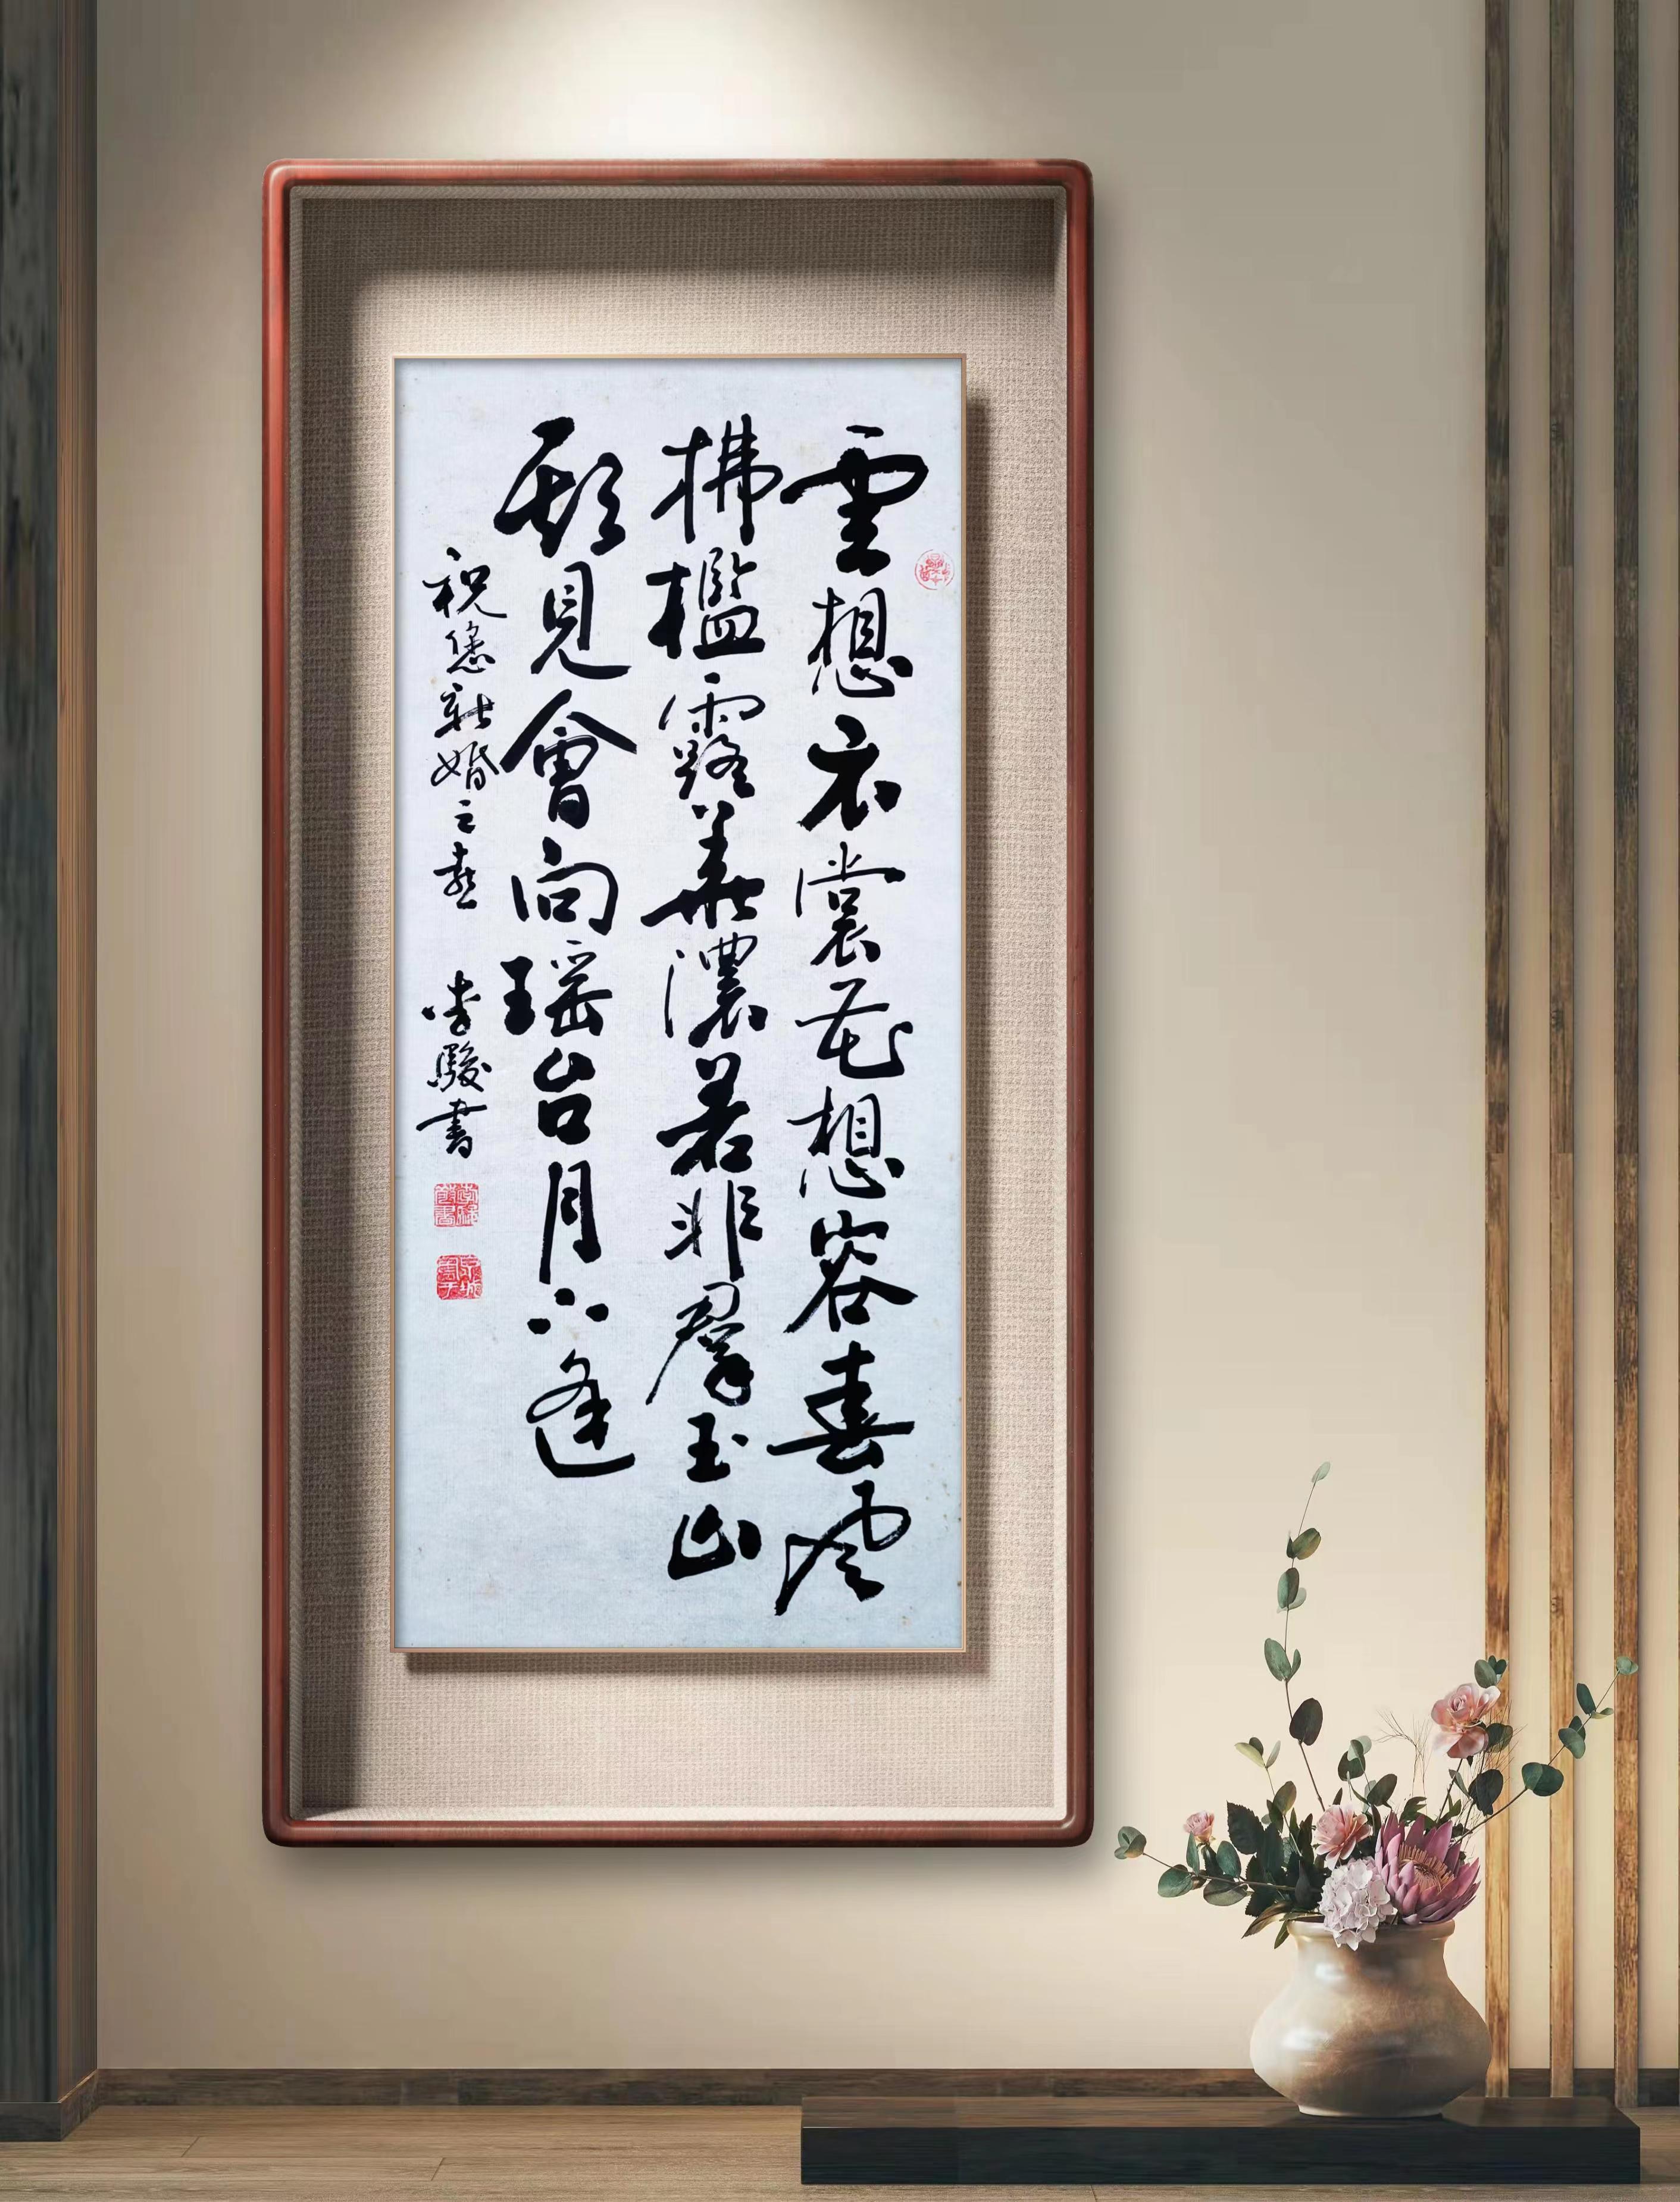 雲想衣裳花想容春風
拂檻露華濃若非羣玉山
頭見會向瑶台月下逢
祝您新婚之喜 李駿書